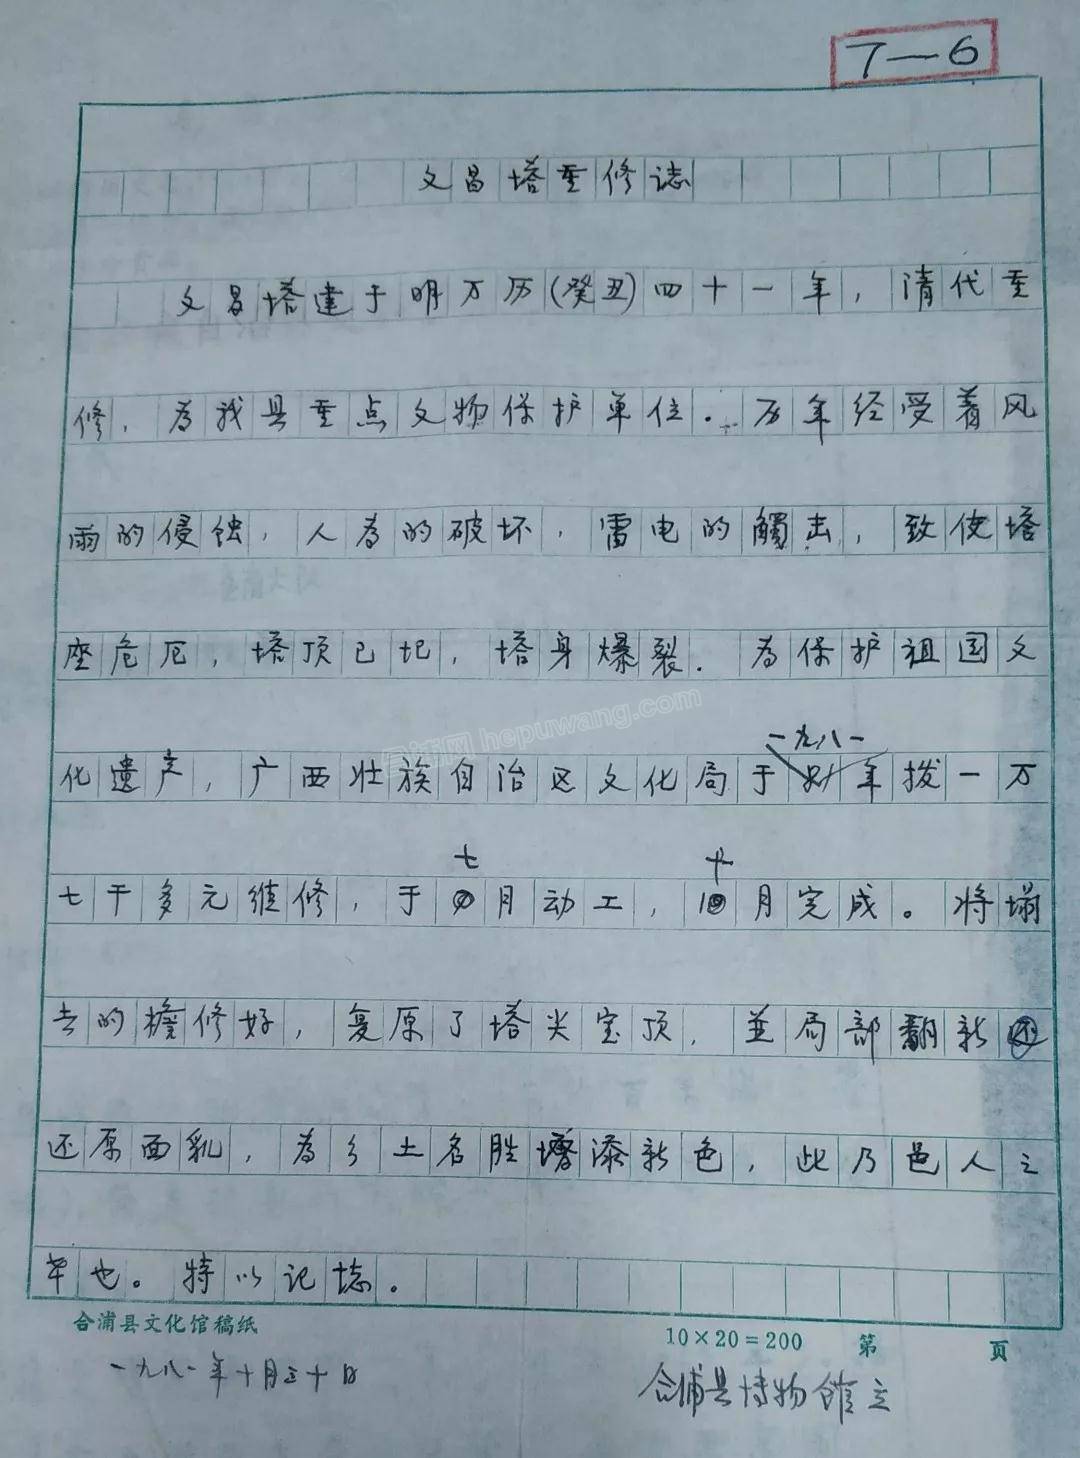 7—6
文昌塔重修誌
文昌塔建于明万历(癸丑)四十一年，清代重
修，为我县重点文物保护单位．历年经受着风
雨的侵蚀，人为的破坏，雷电的觸击，致使塔
座危厄，塔顶已圮，塔身爆裂．为保护祖国文
一九八一
化遗产，广西壮族自治区文化局于年拨一万
七 十
七千多元维修，于月动工，月完成。将塌
去的檐修好，复原了塔尖宝顶，並局部翻新
还原面貌，为乡土名胜增添新色，此乃邑人之
幸也。特以记誌。
合浦县文化馆稿纸 10×20=200 第 页
一九八一年十月三十日
合浦县博物馆立
hepuwang.com